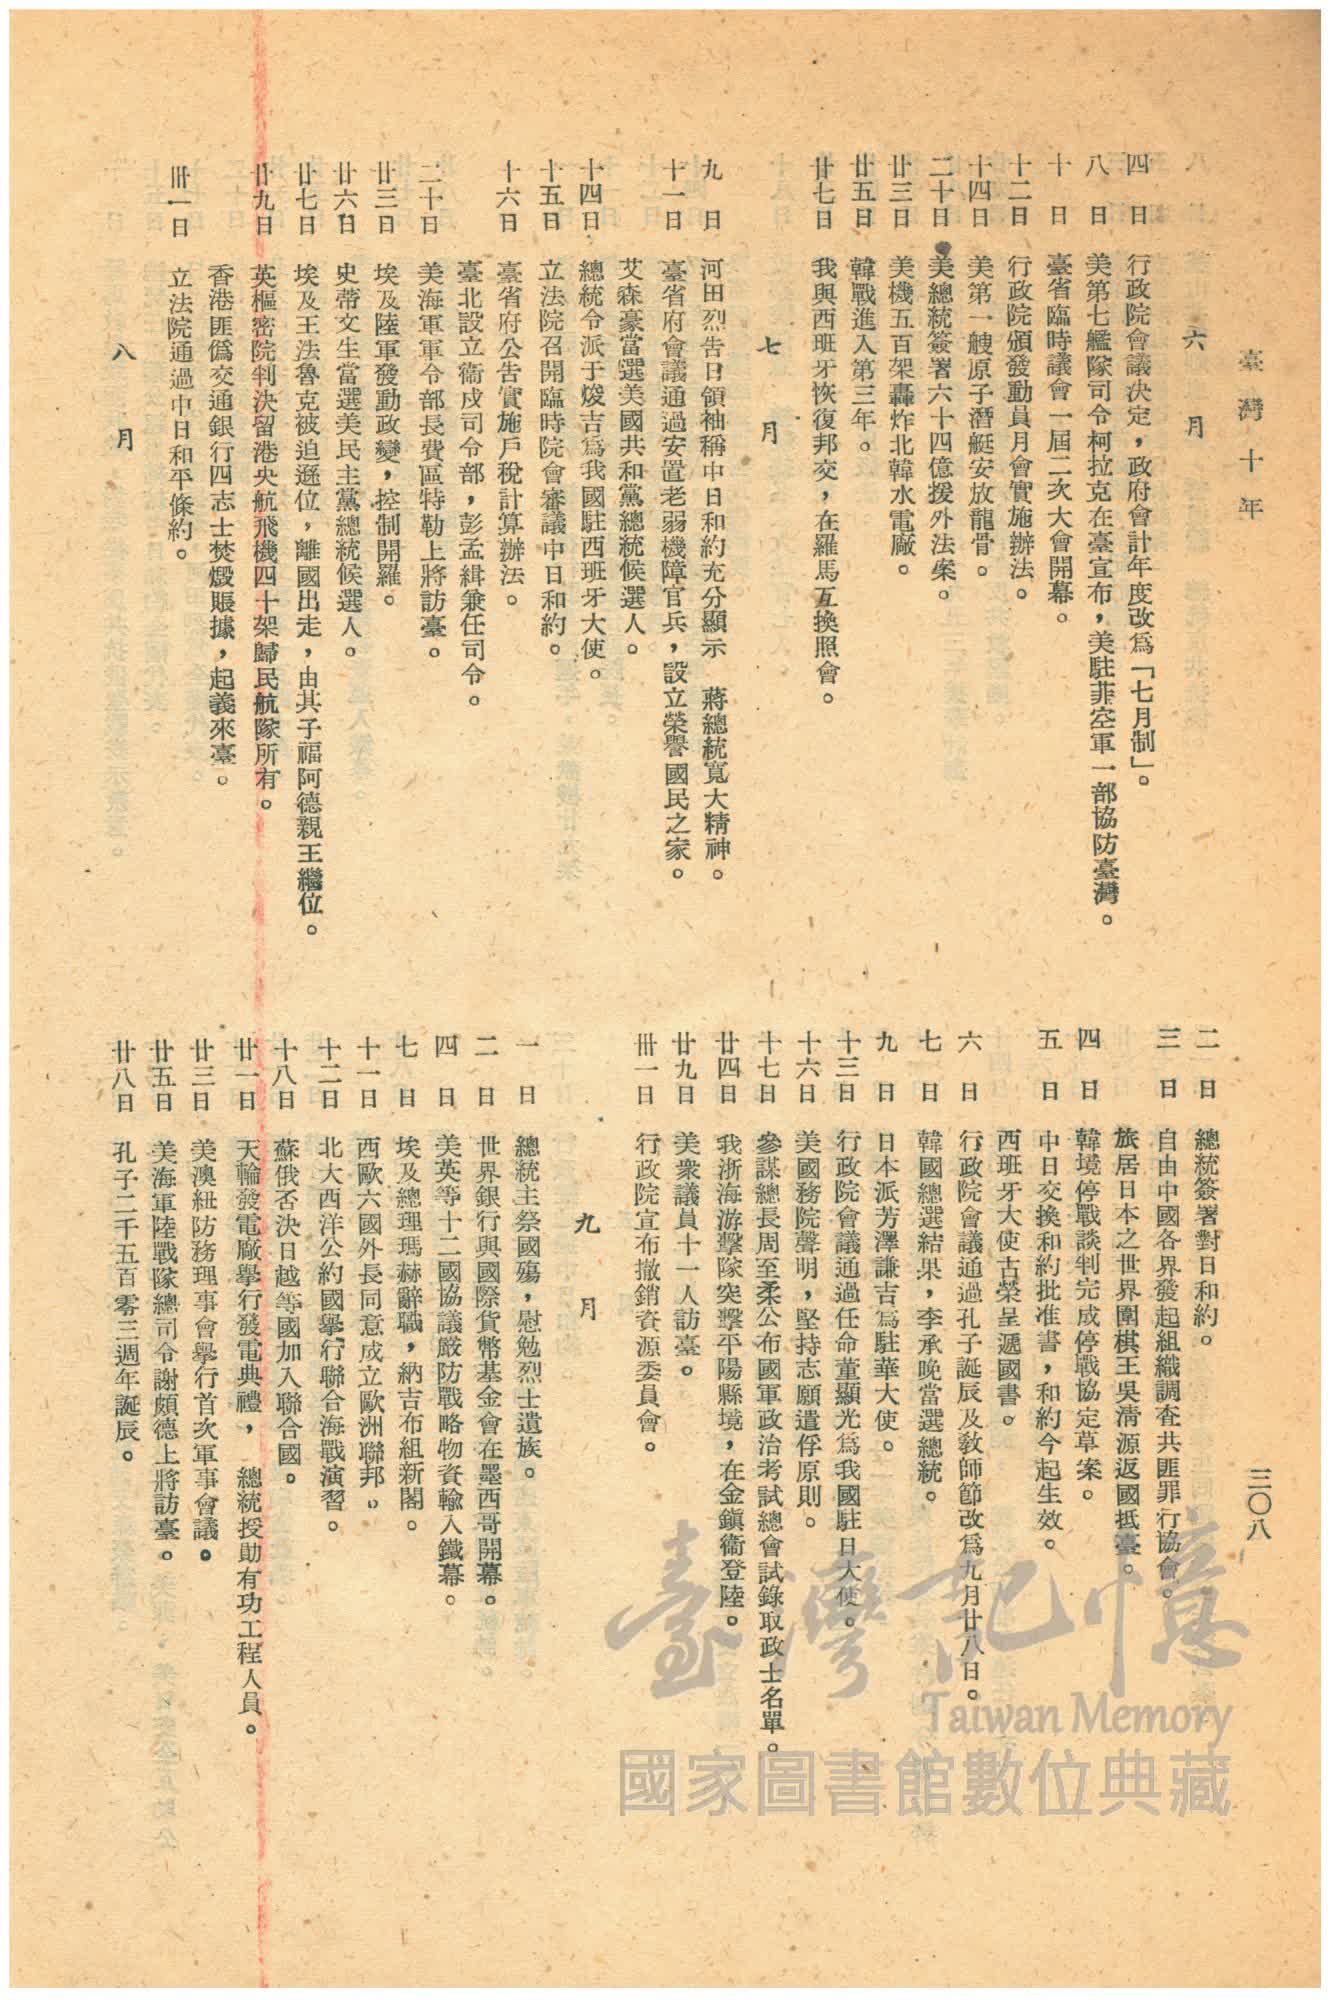 臺灣十年
三〇八
六月
四日 行政院會議決定，政府會計年度改爲「七月制」。
八日 美第七艦隊司令柯拉克在臺宣布，美駐菲空軍一部協防臺灣。
十日 臺省臨時議會一屆二次大會開幕。
十二日 行政院頒發動員月會實施辦法。
十四日 美第一艘原子潛艇安放龍骨。
二十日 美總統簽署六十四億援外法案。
廿三日 美機五百架轟炸北韓水電廠。
廿五日 韓戰進入第三年。
廿七日 我與西班牙恢復邦交，在羅馬互換照會。
七月
九日 河田烈告日領袖稱中日和約充分顯示 蔣總統寬大精神。
十一日 臺省府會議通過安置老弱機障官兵，設立榮譽國民之家。
艾森豪當選美國共和黨總統候選人。
十四日 總統令派于焌吉爲我國駐西班牙大使。
十五日 立法院召開臨時院會審議中日和約。
十六日 臺省府公告實施戶稅計算辦法。
臺北設立衞戍司令部，彭孟緝兼任司令。
二十日 美海軍軍令部長費區特勒上將訪臺。
廿三日 埃及陸軍發動政變，控制開羅。
廿六日 史蒂文生當選美民主黨總統候選人。
廿七日 埃及王法魯克被迫遜位，離國出走，由其子福阿德親王繼位。
廿九日 英樞密院判決留港央航飛機四十架歸民航隊所有。
香港匪僞交通銀行四志士焚燬賬據，起義來臺。
卅一日 立法院通過中日和平條約。
八月
二日 總統簽署對日和約。
三日 自由中國各界發起組織調查共匪罪行協會。
旅居日本之世界圍棋王吳清源返國抵臺。
四日 韓境停戰談判完成停戰協定草案。
五日 中日交換和約批准書，和約今起生效。
西班牙大使古榮呈遞國書。
六日 行政院會議通過孔子誕辰及敎師節改爲九月廿八日。
七日 韓國總選結果，李承晚當選總統。
九日 日本派芳澤謙吉爲駐華大使。
十三日 行政院會議通過任命董顯光爲我國駐日大使。
十六日 美國務院聲明，堅持志願遣俘原則。
十七日 參謀總長周至柔公布國軍政治考試總會試錄取政士名單。
廿四日 我浙海游擊隊突擊平陽縣境，在金鎭衞登陸。
廿九日 美衆議員十一人訪臺。
卅一日 行政院宣布撤銷資源委員會。
九月
一日 總統主祭國殤，慰勉烈士遺族。
二日 世界銀行與國際貨幣基金會在墨西哥開幕。
四日 美英等十二國協議嚴防戰略物資輸入鐵幕。
七日 埃及總理瑪赫辭職，納吉布組新閣。
十一日 西歐六國外長同意成立歐洲聯邦。
十二日 北大西洋公約國擧行聯合海戰演習。
十八日 蘇俄否決日越等國加入聯合國。
廿一日 天輪發電廠擧行發電典禮， 總統授助有功工程人員。
廿三日 美澳紐防務理事會擧行首次軍事會議。
廿五日 美海軍陸戰隊總司令謝頗德上將訪臺。
廿八日 孔子二千五百零三週年誕辰。
臺灣記憶
Taiwan Memory
國家圖書館數位典藏